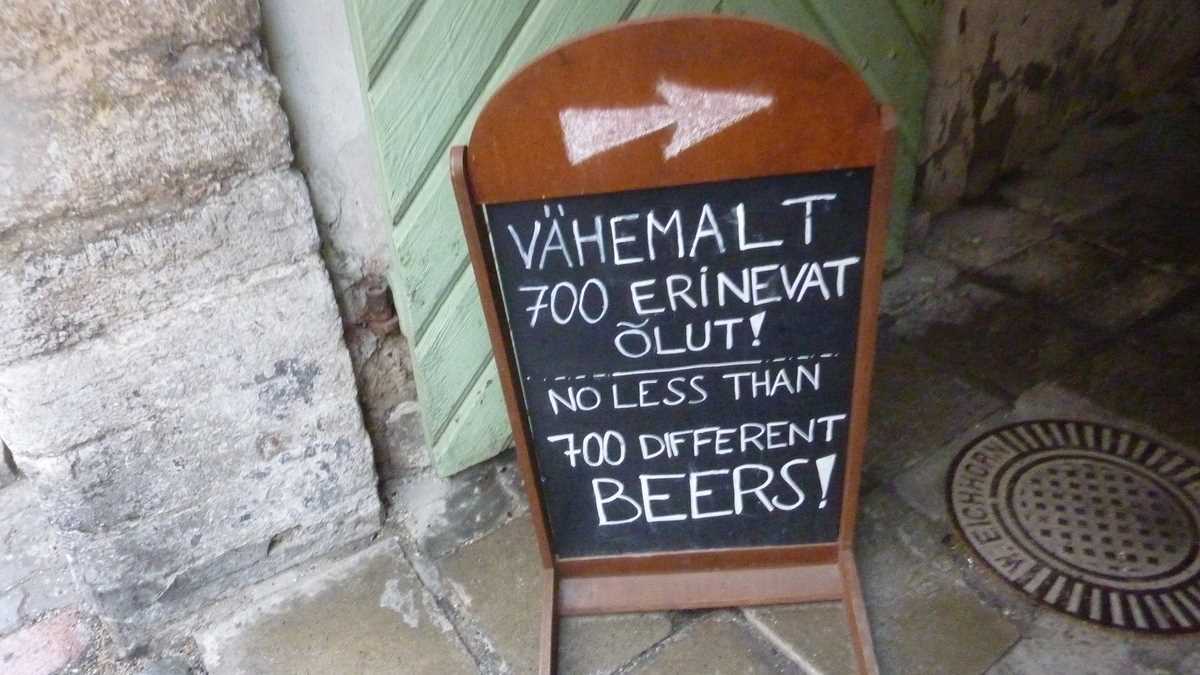 VÄHEMALT
700 ERINEVAT
ÕLUT!
NO LESS THAN
700 DIFFERENT
BEERS!
W. EICHHORN